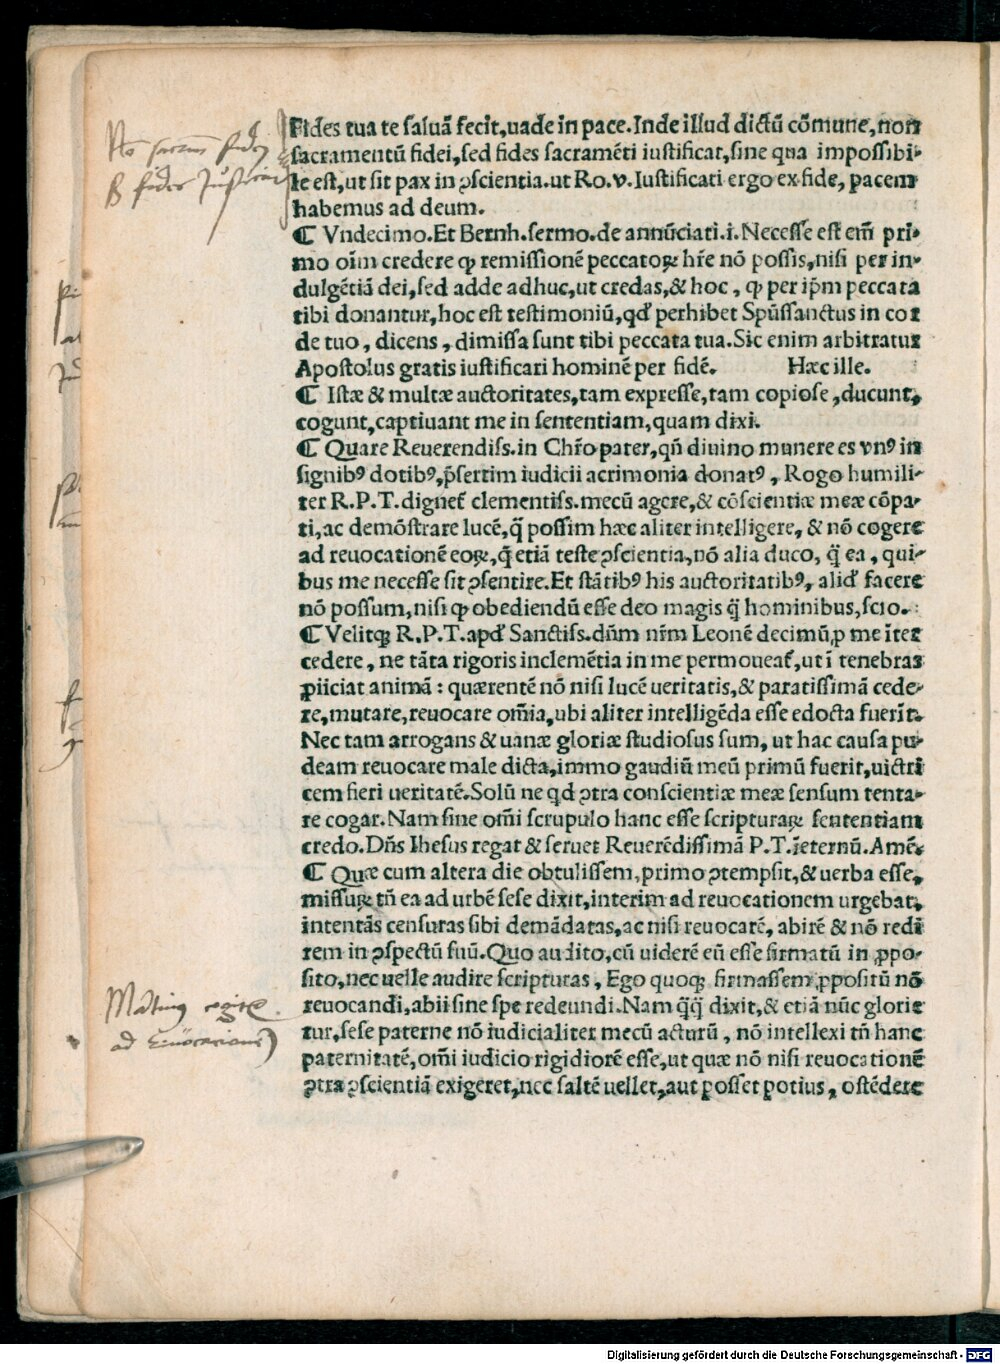 Fides tua te saluā fecit,uade in pace.Inde illud dictū cōmune,non
sacramentū fidei,sed fides sacramēti iustificat,sine qua impossibi-
le est,ut sit pax in ꝯscientia.ut Ro.v.Iustificati ergo ex fide, pacem
habemus ad deum.
¶ Vndecimo.Et Bernh.sermo.de annūciati.i.Necesse est em̄ pri-
mo oīm credere ꝙ remissionē peccatoꝝ hr̄e nō possis,nisi per in-
dulgētiā dei,sed adde adhuc,ut credas,& hoc, ꝙ per ip̄m peccata
tibi donantur,hoc est testimoniū,qd̓ perhibet Spūssanctus in cor
de tuo, dicens, dimissa sunt tibi peccata tua.Sic enim arbitratur
Apostolus gratis iustificari hominē per fidē. Hæc ille.
¶ Istæ & multæ auctoritates,tam expresse,tam copiose,ducunt,
cogunt,captiuant me in sententiam,quam dixi.
¶ Quare Reuerendiss.in Chr̄o pater,qn̄ diuino munere es vnꝰ in
signibꝰ dotibꝰ,p̄sertim iudicii acrimonia donatꝰ, Rogo humili-
ter R.P.T.dignet̓ clementiss.mecū agere,& cōscientiæ meæ cōpa-
ti,ac demōstrare lucē,q̄ possim hæc aliter intelligere, & nō cogere
ad reuocationē eoꝝ,q̄ etiā teste ꝯscientia,nō alia duco, q̄ ea, qui-
bus me necesse sit ꝯsentire.Et stātibꝰ his auctoritatibꝰ, alid̓ facere
nō possum,nisi ꝙ obediendū esse deo magis q̄ hominibus,scio.
¶ Velitqꝫ R.P.T.apd̓ Sanctiss.dn̄m nr̄m Leonē decimū,ꝓ me īter
cedere, ne tāta rigoris inclemētia in me permoueat̓,ut ī tenebras
ꝓiiciat animā: quærentē nō nisi lucē ueritatis,& paratissimā cede-
re,mutare,reuocare om̄ia,ubi aliter intelligēda esse edocta fuerīt.
Nec tam arrogans & uanæ gloriæ studiosus sum, ut hac causa pu-
deam reuocare male dicta,immo gaudiū meū primū fuerit,uictri
cem fieri ueritatē.Solū ne qd ꝯtra conscientiæ meæ sensum tenta-
re cogar.Nam sine om̄i scrupulo hanc esse scripturaꝝ sententiam
credo.Dn̄s Ihesus regat & seruet Reuerēdissimā P.T.īeternū.Amē.
¶ Quæ cum altera die obtulissem,primo ꝯtempsit,& uerba esse,
missuꝝ tn̄ ea ad urbē sese dixit,interim ad reuocationem urgebat,
intentās censuras sibi demādatas,ac nisi reuocarē, abirē & nō redi
rem in ꝯspectū suū.Quo audito,cū uiderē eū esse firmatū in ꝓpo-
sito,nec uelle audire scripturas, Ego quoqꝫ firmassem ꝓpositū nō
reuocandi,abii sine spe redeundi.Nam q̄q̄ dixit,& etiā nūc glorie
tur,sese paterne nō iudicialiter mecū acturū, nō intellexi tn̄ hanc
paternitatē,om̄i iudicio rigidiorē esse,ut quæ nō nisi reuocationē
ꝯtra ꝯscientiā exigeret,nec saltē uellet,aut posset potius, ostēdere
Digitalisierung gefördert durch die Deutsche Forschungsgemeinschaft - DFG